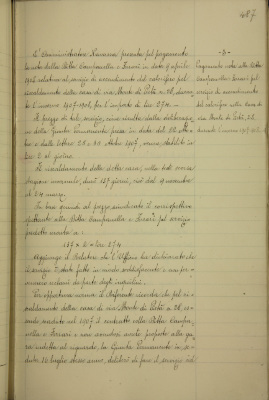 487
L'Amministratore Ravenna presenta pel pagamento
la nota della Ditta Campanella e Ferrari in data 9 aprile
1908 relativa al servizio di accendimento del calorifero pel
riscaldamento della casa di via Monte di Pietà n. 28, durante
l'inverno 1907-1908, per l'importo di Lire 274.-
Il prezzo di tale servizio, come risulta dalla delibera
della Giunta Permanente presa in data del 22 otto
bre e dalle lettere 28 e 30 ottobre 1907, venne stabilito in
Lire 2 al giorno.
Il riscaldamento della detta casa, nella testé scorsa
stagione invernale, durò 137 giorni, cioè dal 9 novembre
al 24 marzo.
In base quindi al prezzo suindicato il corrispettivo
spettante alla Ditta Campanella e Ferrari pel servizio
predetto monta a:
137 x 2 = Lire 274
Aggiunge il Relatore che l'Ufficio ha dichiarato che
il servizio è stato fatto in modo soddisfacente e non per
vennero reclami da parte degli inquilini.
Per opportuna norma il Referente ricorda che pel ri
scaldamento della casa di via Monte di Pietà n. 28, es
sendo scaduto nel 1907 il contratto colla Ditta Campa
nella e Ferrari e non avendosi avute proposte alla ga
ra indetta al riguardo, la Giunta Permanente in se
duta 10 luglio stesso anno, deliberò di fare il servizio ad
- 3 -
Pagamento nota alla Ditta
Campanella e Ferrari pel
servizio di accendimento
del calorifero nella casa di
via Monte di Pietà, 28,
durante l'inverno 1907-1908